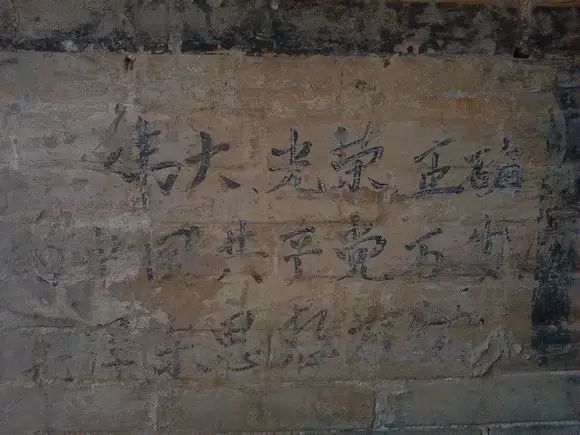 伟大、光荣、正确
的中国共产党万岁
毛泽东思想